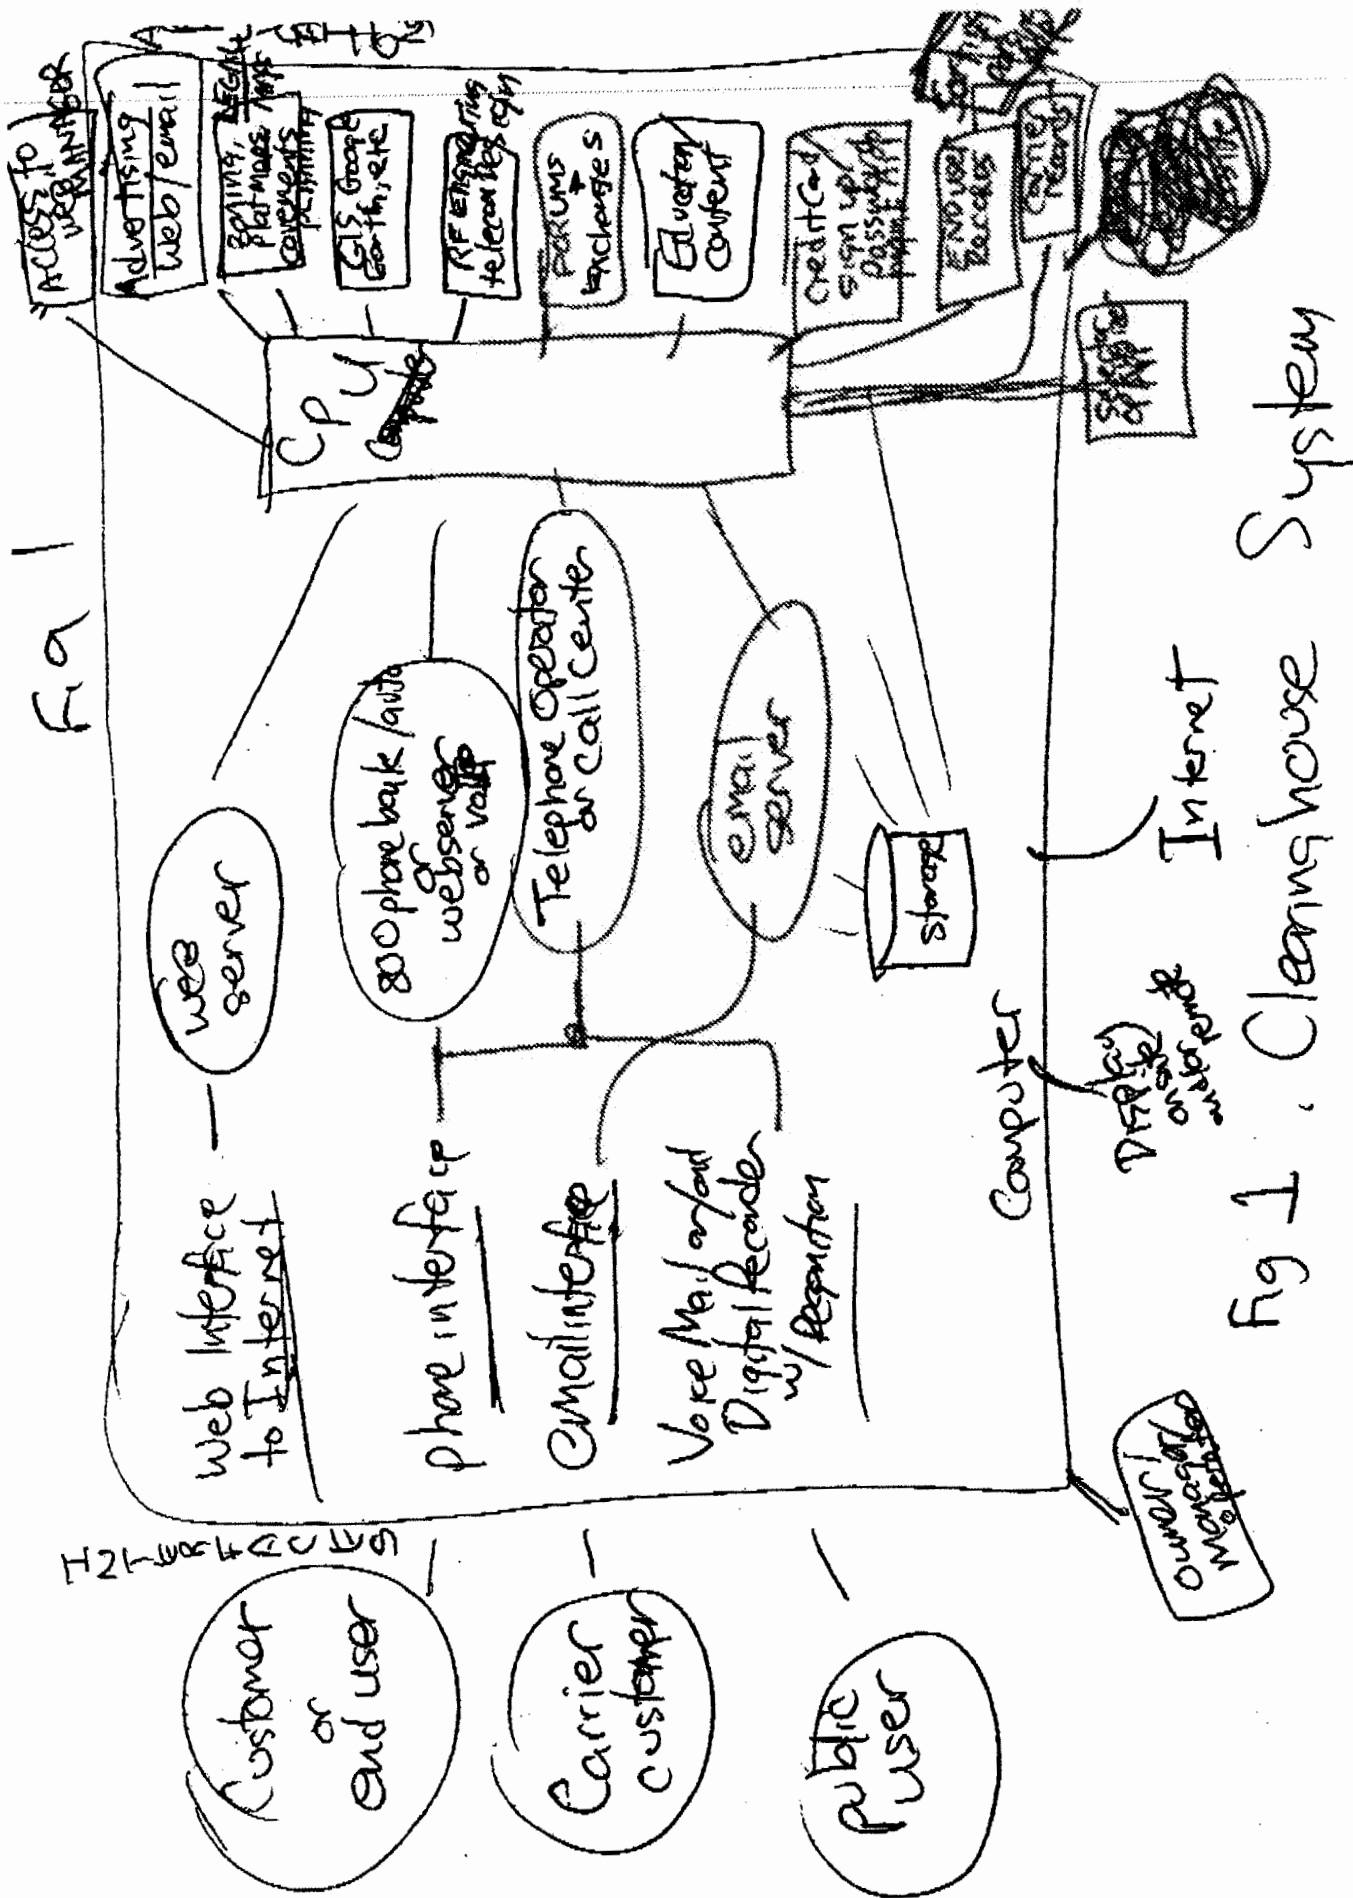 Fig 1
Customer
or
end user
Carrier
customer
public
user
INTERFACES
Web Interface
to Internet
phone interface
email interface
Voice Mail or/and
Digital Recorder
w/ Recognition
web
server
800 phone bank/auto
or
webserver
Telephone Operator
or Call Center
email
server
storage
CPU
Computer
Access to
WEB MANAGER
Advertising
Web/email
zoning,
plat maps
covenants
GIS Google
Earth, etc
RF Engineering
telecom design
FORUMS
+
Exchanges
Education
Content
Credit Card
sign up
END user
Records
Carrier
Records
Computer
Display
on site
and/or remote
Internet
owner/
Manager/
Fig 1. Clearinghouse System